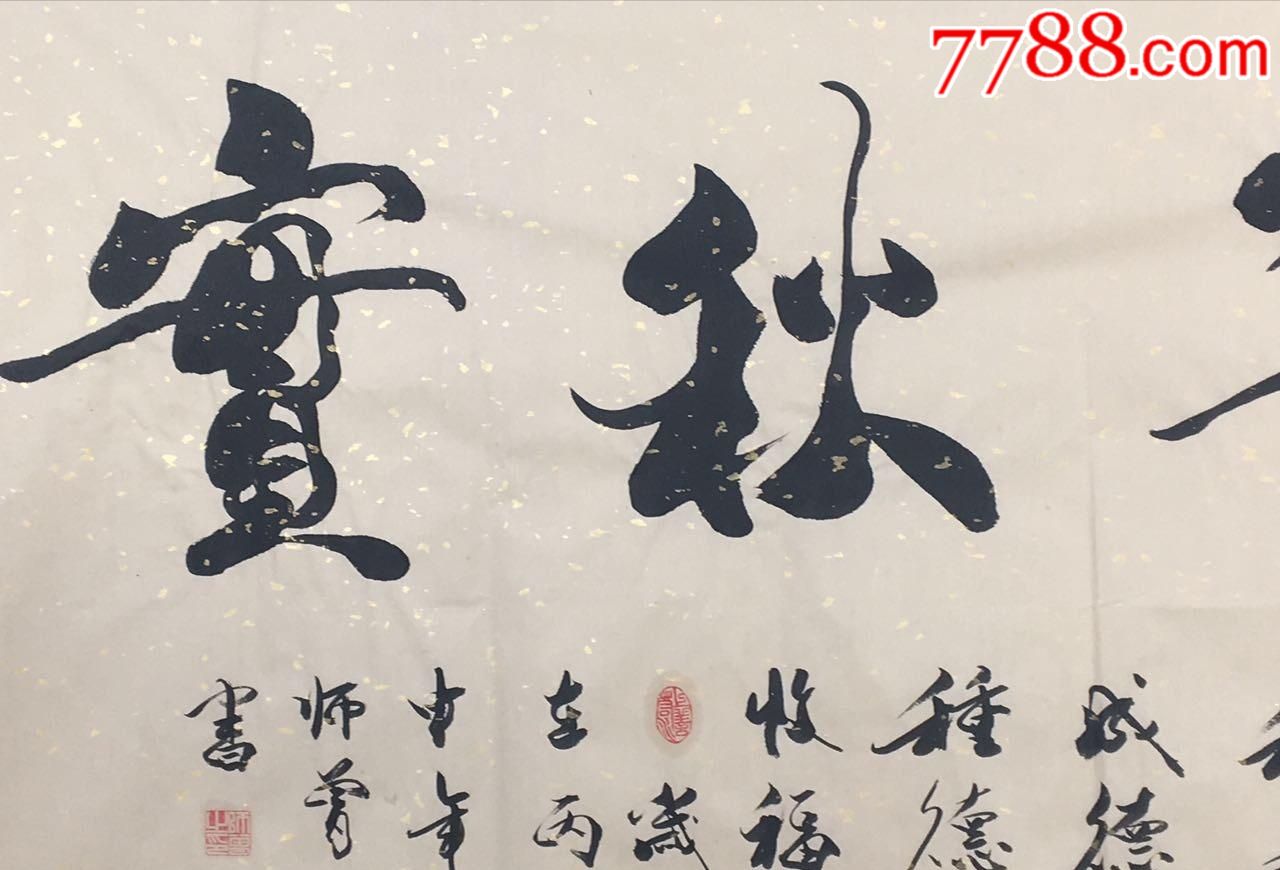 7788.com
秋實
成德
種德
收福
歲
在丙
申年
师
書